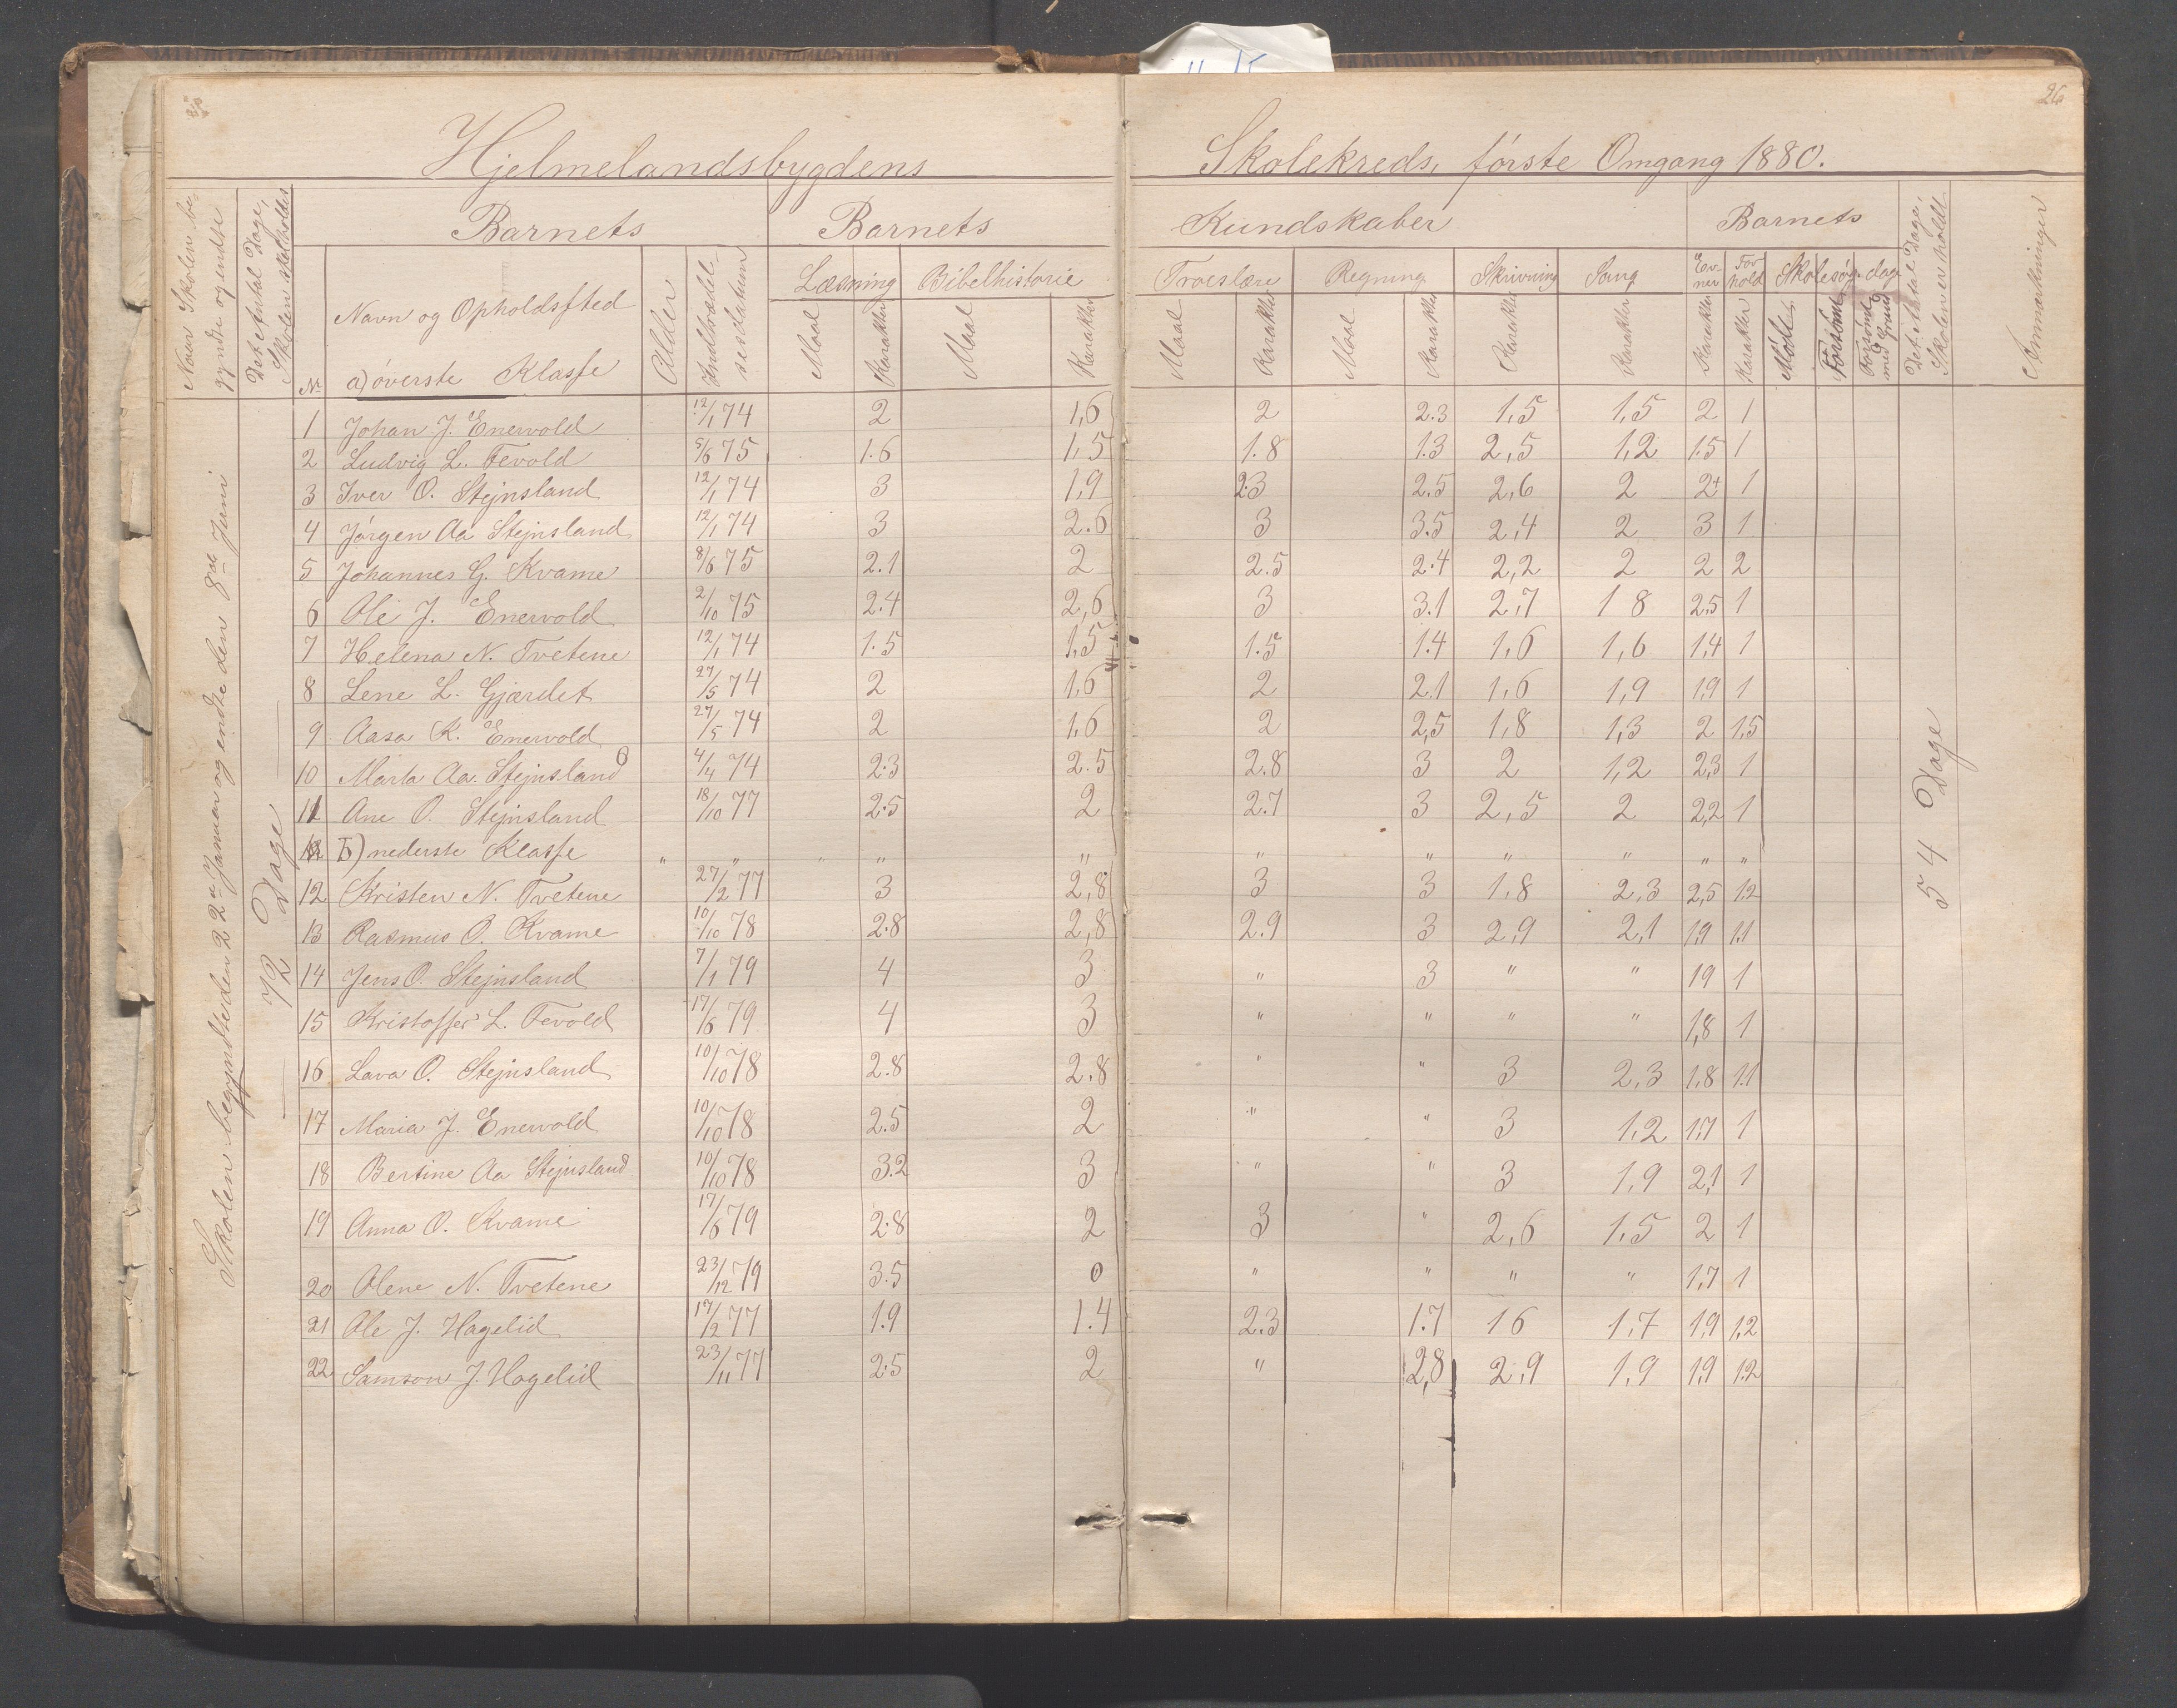 26
Hjelmelandsbygdens Skolekreds, første Omgang 1880.
Naar Skolen be-
gyndte og endte
Det Antal Dage,
Skolen skal holdes
Barnets Barnets Kundskaber Barnets
Nr. Navn og Opholdssted
a) øverste Klasse
Alder
Indtrædel-
sesdatum
Læsning Bibelhistorie Troeslære Regning Skrivning Sang Ev-
ner For-
hold Skolesøg. dage
Maal Karakter Maal Karakter Maal Karakter Maal Karakter Karakter Karakter Karakter Karakter Mødt Forsømt Forsømt
med Grund
Det Antal Dage,
Skolen er holdt
Anmærkninger
Skolen begyndte den 22de Januar og endte den 8de Juni
72 Dage
54 Dage
1 Johan J. Enervold 12/1 74 2 1,6 2 2.3 1,5 1,5 2 1
2 Ludvig L. Tevold 5/6 75 1.6 1,5 1.8 1.3 2,5 1,2 1.5 1
3 Iver O. Stejnsland 12/1 74 3 1,9 2.3 2.5 2,6 2 2+ 1
4 Jørgen Aa Stejnsland 12/1 74 3 2.6 3 3.5 2,4 2 3 1
5 Johannes G. Kvame 8/6 75 2.1 2 2.5 2.4 2,2 2 2 2
6 Ole J. Enervold 2/10 75 2.4 2,6 3 3.1 2,7 1 8 2.5 1
7 Helena N. Tvetene 12/1 74 1.5 1,5 1.5 1.4 1,6 1,6 1,4 1
8 Lene L. Gjærdet 27/5 74 2 1,6 2 2.1 1,6 1,9 1,9 1
9 Aasa K. Enervold 27/5 74 2 1,6 2 2,5 1,8 1,3 2 1,5
10 Marta Aa. Stejnsland 4/4 74 2.3 2.5 2.8 3 2 1,2 2,3 1
11 Ane O. Stejnsland 18/10 77 2.5 2 2.7 3 2,5 2 2,2 1
b) nederste Klasse " " " " " " " " " " "
12 Kristen N. Tvetene 27/2 77 3 2,8 3 3 1,8 2,3 2,5 1.2
13 Rasmus O. Kvame 10/10 78 2.8 2,8 2.9 3 2,9 2,1 1,9 1.1
14 Jens O. Stejnsland 7/1 79 4 3 " 3 " " 19 1
15 Kristoffer L. Tevold 17/6 79 4 3 " " " " 1,8 1
16 Lava O. Stejnsland 10/10 78 2.8 2.8 " " 3 2,3 1.8 1.1
17 Maria J. Enervold 10/10 78 2.5 2 " " 3 1.2 1.7 1
18 Bertine Aa Stejnsland 10/10 78 3.2 3 " " 3 1,9 2,1 1
19 Anna O. Kvame 17/6 79 2.8 2 3 " 2,6 1.5 2 1
20 Olene N. Tvetene 23/12 79 3.5 0 " " " " 1.7 1
21 Ole J. Hagelid 17/2 77 1.9 1.4 2.3 1.7 1 6 1,7 1,9 1,2
22 Samson J. Hagelid 23/11 77 2.5 2 " 2,8 2,9 1,9 1,9 1.2